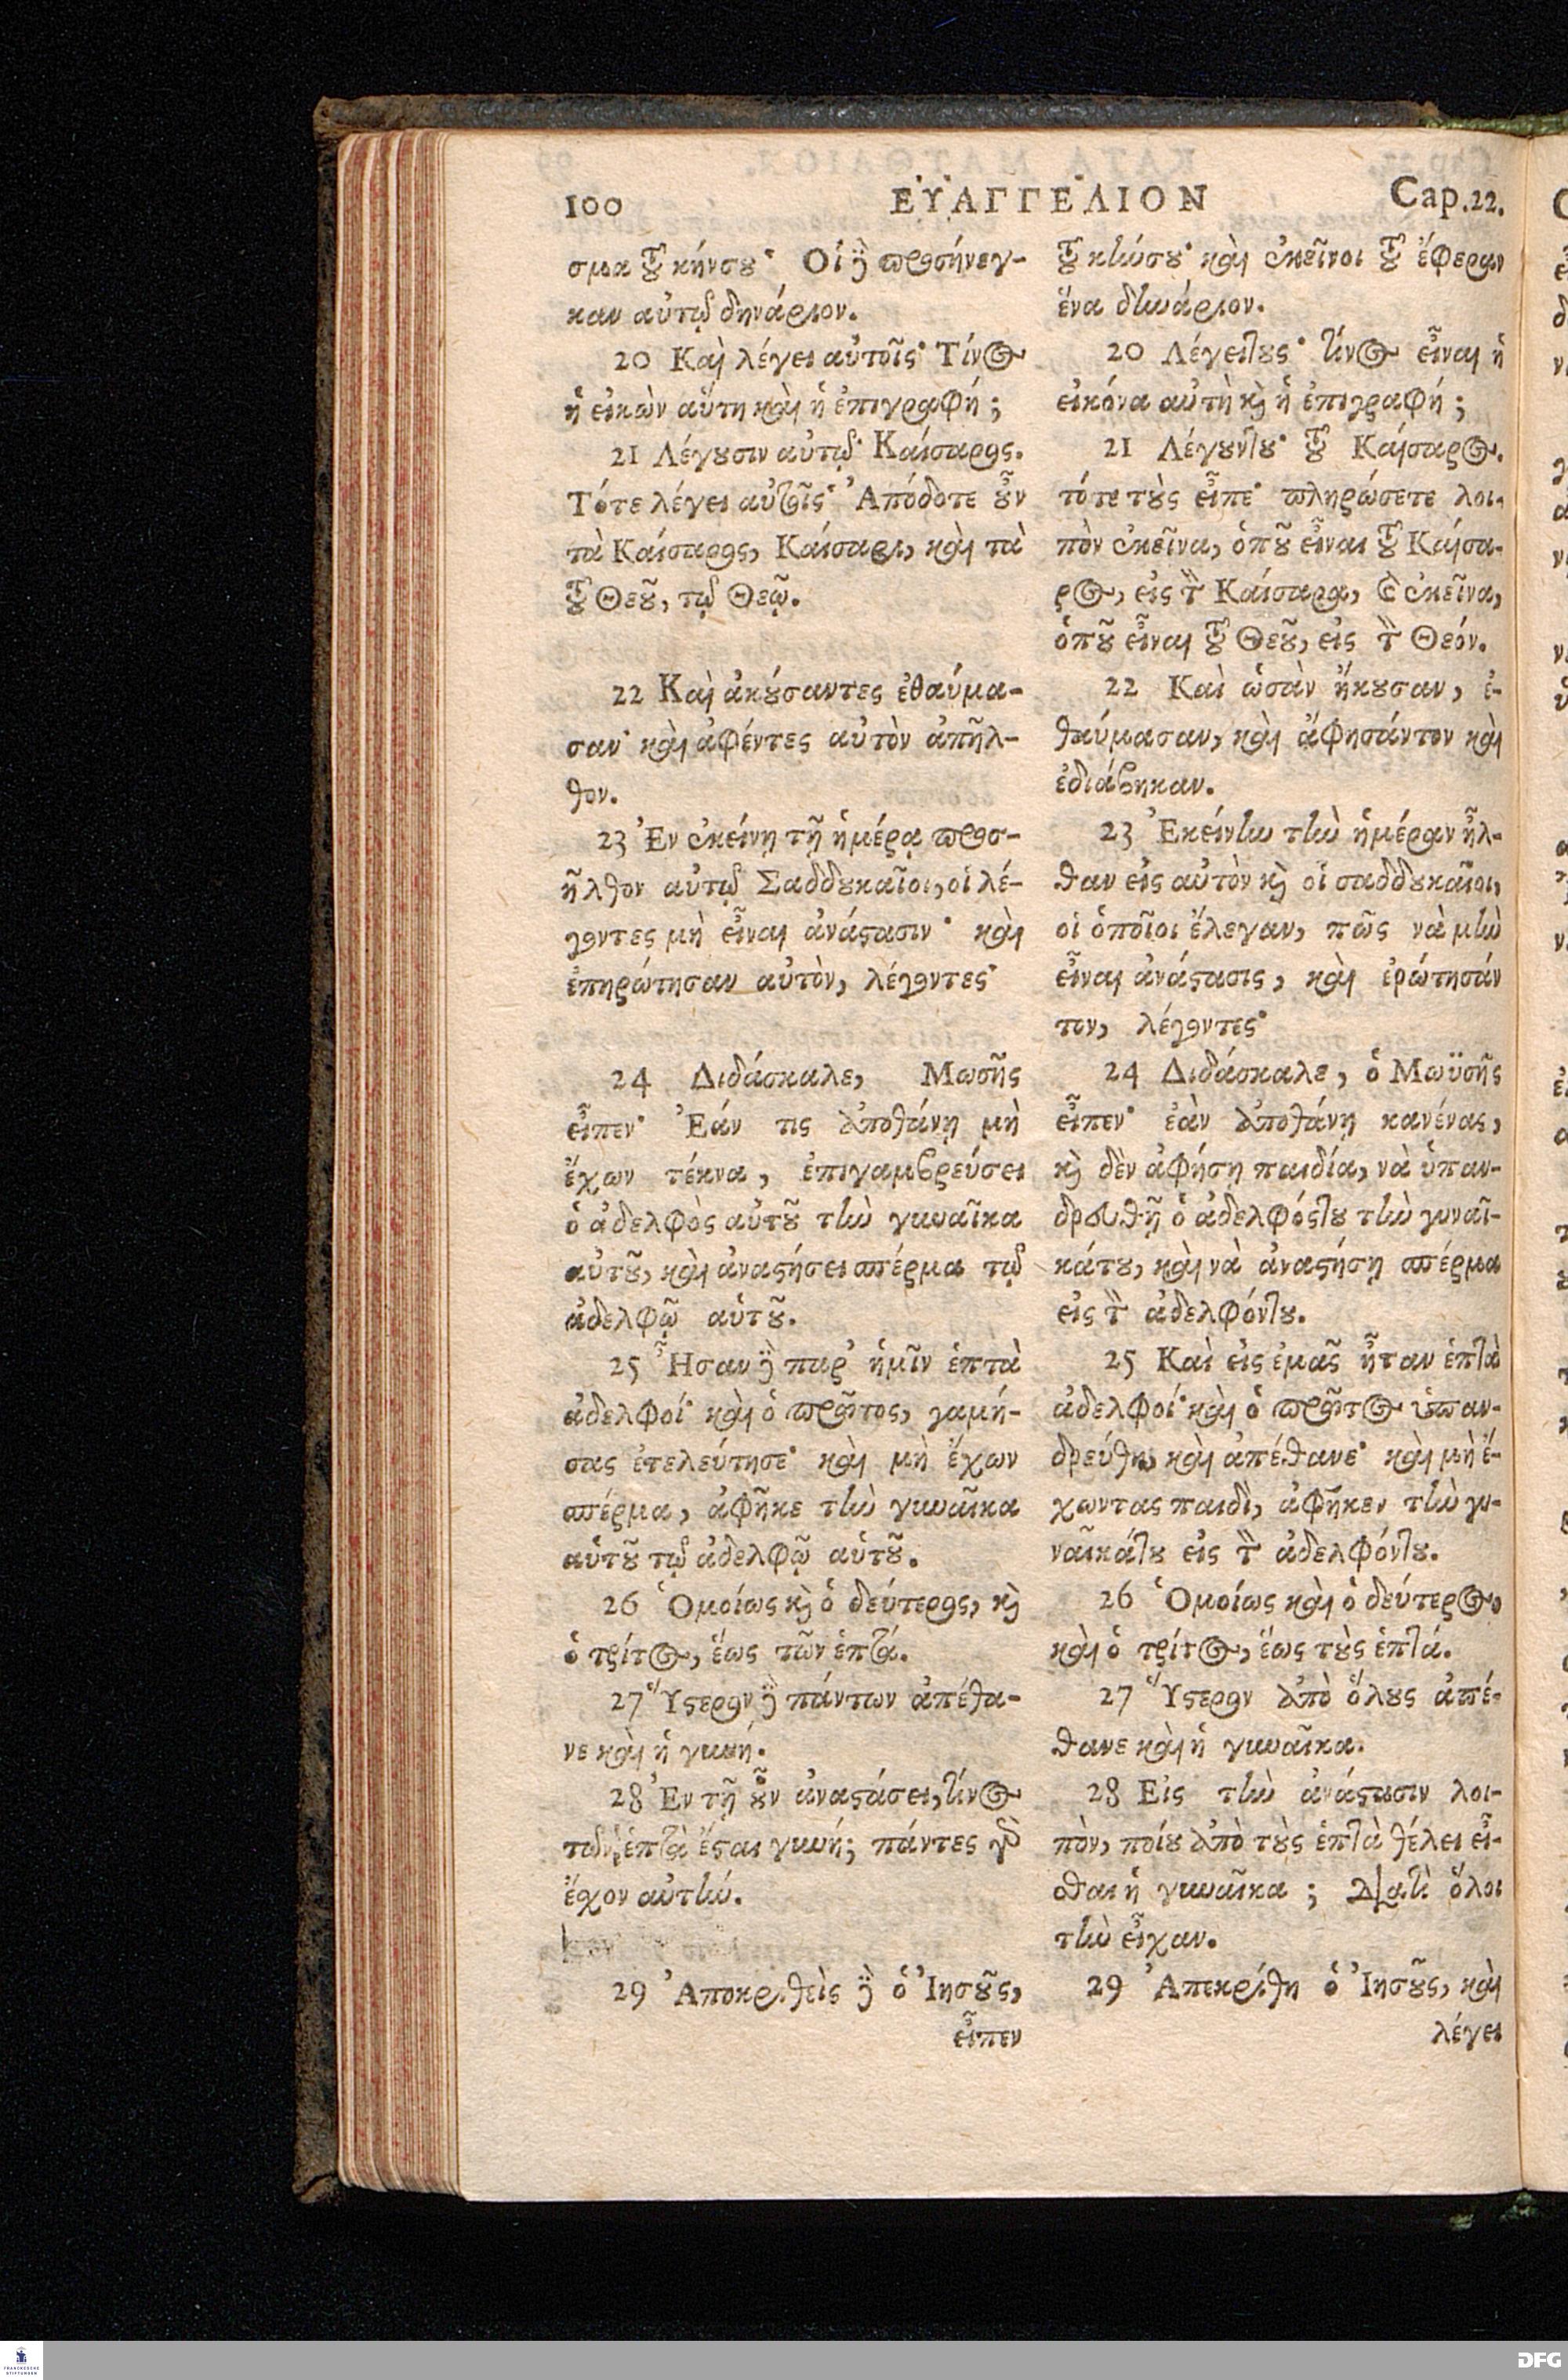 100 ΕΥ̓ΑΓΓΕΛΙΟΝ Cap.22.
σμα τȣ͂ κήνσȣ· Οἱ δὲ προσήνεγ-
καν αὐτῷ δηνάριον.
20 Καὶ λέγει αὐτοῖς· Τίνος
ἡ εἰκὼν αὕτη καὶ ἡ ἐπιγραφή;
21 Λέγȣσιν αὐτῷ· Καίσαρος.
Τότε λέγει αὐτοῖς· Ἀπόδοτε ȣ͂̓ν
τὰ Καίσαρος, Καίσαρι, καὶ τὰ
τȣ͂ Θεȣ͂, τῷ Θεῷ.
22 Καὶ ἀκȣ́σαντες ἐθαύμα-
σαν· καὶ ἀφέντες αὐτὸν ἀπῆλ-
θον.
23 Ἐν ἐκείνῃ τῇ ἡμέρᾳ προσ-
ῆλθον αὐτῷ Σαδδȣκαῖοι, οἱ λέ-
γοντες μὴ εἶναι ἀνάϛασιν· καὶ
ἐπηρώτησαν αὐτὸν, λέγοντες·
24 Διδάσκαλε, Μωσῆς
εἶπεν· Ἐάν τις ἀποθάνῃ μὴ
ἔχων τέκνα, ἐπιγαμβρεύσει
ὁ ἀδελφὸς αὐτȣ͂ τὴν γυναῖκα
αὐτȣ͂, καὶ ἀναϛήσει σπέρμα τῷ
ἀδελφῷ αὑτȣ͂.
25 Ἦσαν δὲ παρ' ἡμῖν ἑπτὰ
ἀδελφοί· καὶ ὁ πρῶτος, γαμή-
σας ἐτελεύτησε· καὶ μὴ ἔχων
σπέρμα, ἀφῆκε τὴν γυναῖκα
αὑτȣ͂ τῷ ἀδελφῷ αὑτȣ͂.
26 Ὁμοίως κ̀ ὁ δεύτερος, κ̀
ὁ τρίτος, ἕως τῶν ἑπτά.
27 Ὕϛερον δὲ πάντων ἀπέθα-
νε καὶ ἡ γυνή.
28 Ἐν τῇ ȣ͂̓ν ἀναϛάσει, τίνος
τῶν ἑπτὰ ἔϛαι γυνή; πάντες γὰρ
ἔχον αὐτήν.
29 Ἀποκριθεὶς δὲ ὁ Ἰησȣ͂ς,
εἶπεν
τȣ͂ κήνσȣ· καὶ ἐκεῖνοι τȣ͂ ἔφεραν
ἕνα δηνάριον.
20 Λέγειτȣς· τίνος εἶναι ἡ
εἰκόνα αὐτὴ κ̀ ἡ ἐπιγραφή;
21 Λέγȣντȣ· τȣ͂ Καίσαρος.
τότε τȣ̀ς εἶπε· πληρώσετε λοι-
πὸν ἐκεῖνα, ὁπȣ͂ εἶναι τȣ͂ Καίσα-
ρος, εἰς τὸν Καίσαρα, καὶ ἐκεῖνα,
ὁπȣ͂ εἶναι τȣ͂ Θεȣ͂, εἰς τὸν Θεόν.
22 Καὶ ὡσὰν ἤκȣσαν, ἐ-
θαύμασαν, καὶ ἄφησάντον καὶ
ἐδιάβηκαν.
23 Ἐκείνην τὴν ἡμέραν ἦλ-
θαν εἰς αὐτὸν κ̀ οἱ σαδδȣκαῖοι,
οἱ ὁποῖοι ἔλεγαν, πῶς νὰ μὴν
εἶναι ἀνάϛασις, καὶ ἐρώτησάν
τον, λέγοντες·
24 Διδάσκαλε, ὁ Μωϋσῆς
εἶπεν· ἐὰν ἀποθάνῃ κανένας,
κ̀ δὲν ἀφήσῃ παιδία, νὰ ὑπαν-
δρευθῇ ὁ ἀδελφόςτȣ τὴν γυναῖ-
κάτȣ, καὶ νὰ ἀναϛήσῃ σπέρμα
εἰς τὸν ἀδελφόντȣ.
25 Καὶ εἰς ἐμᾶς ἦταν ἑπτὰ
ἀδελφοί· καὶ ὁ πρῶτος ὑπαν-
δρεύθη, καὶ ἀπέθανε· καὶ μὴ ἔ-
χωντας παιδὶ, ἀφῆκεν τὴν γυ-
ναῖκάτȣ εἰς τὸν ἀδελφόντȣ.
26 Ὁμοίως καὶ ὁ δεύτερος,
καὶ ὁ τρίτος, ἕως τȣ̀ς ἑπτά.
27 Ὕϛερον ἀπὸ ὅλȣς ἀπέ-
θανε καὶ ἡ γυναῖκα.
28 Εἰς τὴν ἀνάϛασιν λοι-
πὸν, ποίȣ ἀπὸ τȣ̀ς ἑπτὰ θέλει εἶ-
σθαι ἡ γυναῖκα; Διατὶ ὅλοι
τὴν εἶχαν.
29 Ἀπεκρίθη ὁ Ἰησȣ͂ς, καὶ
λέγει
FRANCKESCHE
STIFTUNGEN
DFG